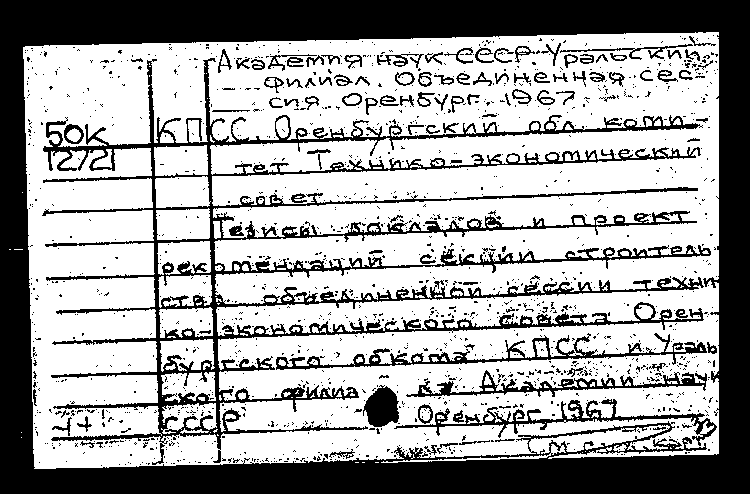 Академия наук СССР. Уральский
филиал. Объединенная сес-
сия. Оренбург. 1967.
50К КПСС. Оренбургский обл. коми-
1272 тет. Технико-экономический
совет
Тезисы докладов и проект
рекомендаций секции строитель-
ства объединенной сессии техни-
ко-экономического совета Орен-
бургского обкома КПСС и Ураль
ского филиа ла Академии наук
СССР Оренбург, 1967
См след. карт